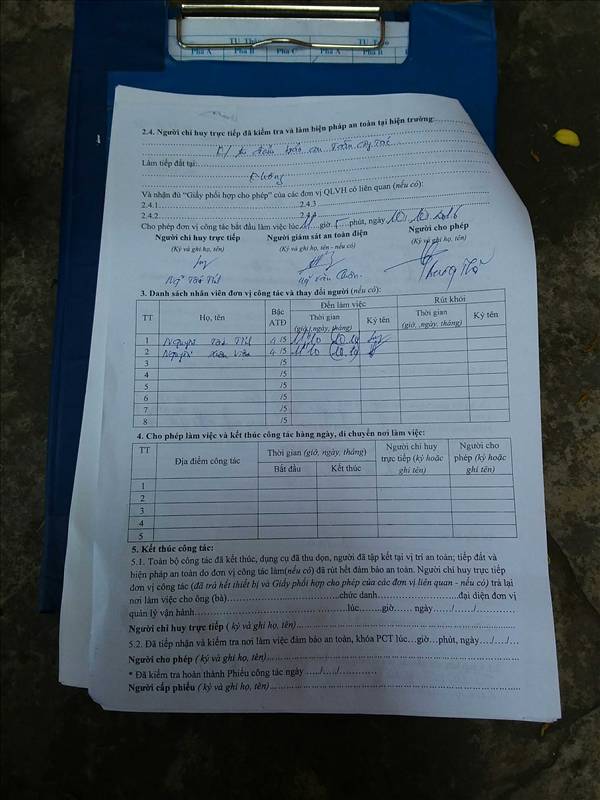 TU Thảo
Pha A Pha B Pha C Pha A Pha B
2.4. Người chỉ huy trực tiếp đã kiểm tra và làm biện pháp an toàn tại hiện trường:
đảm bảo an toàn
Làm tiếp đất tại:
Không
Và nhận đủ “Giấy phối hợp cho phép” của các đơn vị QLVH có liên quan (nếu có):
2.4.1 2.4.3
2.4.2 2.4.4
Cho phép đơn vị công tác bắt đầu làm việc lúc 11 giờ 5 phút, ngày 10. 10. 2016
Người chỉ huy trực tiếp Người giám sát an toàn điện Người cho phép
(Ký và ghi họ, tên) (Ký và ghi họ, tên - nếu có) (Ký và ghi họ, tên)
3. Danh sách nhân viên đơn vị công tác và thay đổi người (nếu có):
TT Họ, tên Bậc ATĐ Đến làm việc Rút khỏi
Thời gian (giờ, ngày, tháng) Ký tên Thời gian (giờ, ngày, tháng) Ký tên
1 Nguyễn 4/5 11h10 10.10
2 Nguyễn 4/5 11h10 10.10
3 /5
4 /5
5 /5
6 /5
7 /5
8 /5
4. Cho phép làm việc và kết thúc công tác hàng ngày, di chuyển nơi làm việc:
TT Địa điểm công tác Thời gian (giờ, ngày, tháng) Người chỉ huy trực tiếp (ký hoặc ghi tên) Người cho phép (ký hoặc ghi tên)
Bắt đầu Kết thúc
1
2
3
4
5
5. Kết thúc công tác:
5.1. Toàn bộ công tác đã kết thúc, dụng cụ đã thu dọn, người đã tập kết tại vị trí an toàn; tiếp đất và
biện pháp an toàn do đơn vị công tác làm(nếu có) đã rút hết đảm bảo an toàn. Người chỉ huy trực tiếp
đơn vị công tác (đã trả hết thiết bị và Giấy phối hợp cho phép của các đơn vị liên quan - nếu có) trả lại
nơi làm việc cho ông (bà) chức danh đại diện đơn vị
quản lý vận hành lúc giờ ngày / /
Người chỉ huy trực tiếp ( ký và ghi họ, tên)
5.2. Đã tiếp nhận và kiểm tra nơi làm việc đảm bảo an toàn, khóa PCT lúc…giờ…phút, ngày…/…/…
Người cho phép ( ký và ghi họ, tên)
* Đã kiểm tra hoàn thành Phiếu công tác ngày / /
Người cấp phiếu ( ký và ghi họ, tên)